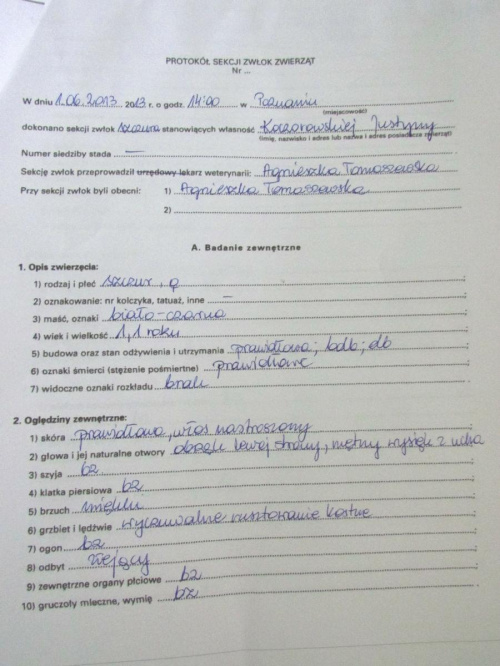 PROTOKÓŁ SEKCJI ZWŁOK ZWIERZĄT
Nr ...
W dniu 1.06.2013 2013 r. o godz. 14:00 w Poznaniu
(miejscowość)
dokonano sekcji zwłok szczura stanowiących własność Kaczorowskiej Justyny
(imię, nazwisko i adres lub nazwa i adres posiadacza zwierząt)
Numer siedziby stada —
Sekcję zwłok przeprowadził urzędowy lekarz weterynarii: Agnieszka Tomaszewska
Przy sekcji zwłok byli obecni: 1) Agnieszka Tomaszewska
2)
A. Badanie zewnętrzne
1. Opis zwierzęcia:
1) rodzaj i płeć szczur, ♀
2) oznakowanie: nr kolczyka, tatuaż, inne —
3) maść, oznaki biało-czarna
4) wiek i wielkość 1,1 roku
5) budowa oraz stan odżywienia i utrzymania prawidłowa; bdb; db
6) oznaki śmierci (stężenie pośmiertne) prawidłowe
7) widoczne oznaki rozkładu brak
2. Oględziny zewnętrzne:
1) skóra prawidłowa, włos nastroszony
2) głowa i jej naturalne otwory obrzęk lewej strony, mętny wysięk z ucha
3) szyja bz
4) klatka piersiowa bz
5) brzuch miękki
6) grzbiet i lędźwie wyczuwalne kostne
7) ogon bz
8) odbyt ziejący
9) zewnętrzne organy płciowe bz
10) gruczoły mleczne, wymię bz